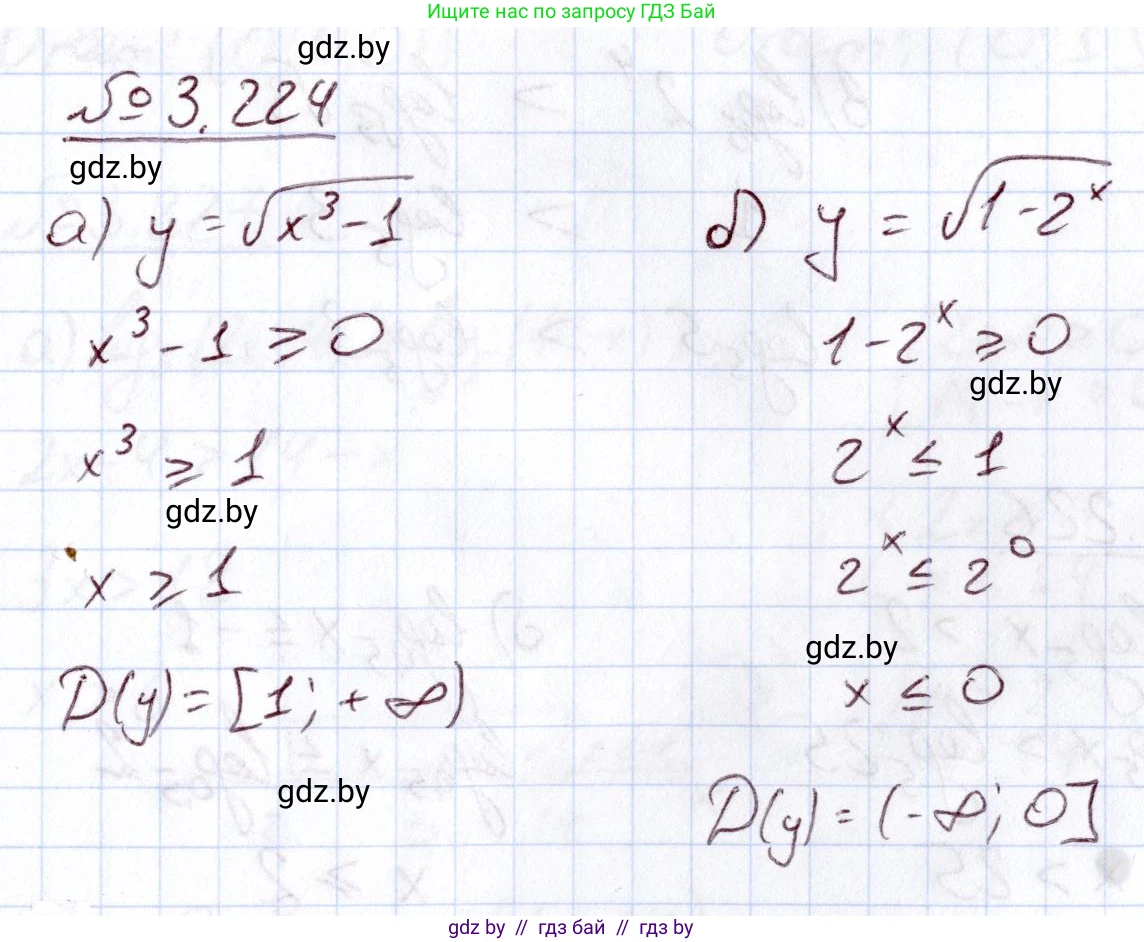 Ищите нас по запросу ГДЗ Бай
gdz.by
№ 3.224
gdz.by
а) y = √(x³ - 1)
x³ - 1 ⩾ 0
x³ ⩾ 1
gdz.by
x ⩾ 1
D(y) = [1; +∞)
gdz.by
б) y = √(1 - 2ˣ)
1 - 2ˣ ⩾ 0
gdz.by
2ˣ ≤ 1
2ˣ ≤ 2⁰
gdz.by
x ≤ 0
D(y) = (-∞; 0]
gdz.by // гдз бай // гдз by